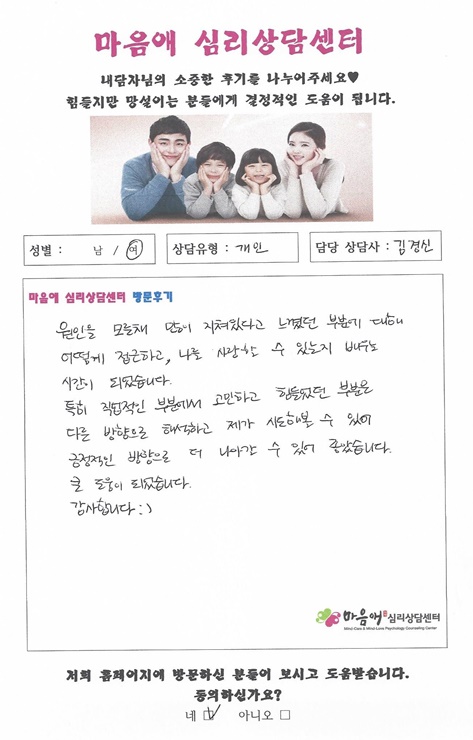 마음애 심리상담센터
내담자님의 소중한 후기를 나누어주세요♥
힘들지만 망설이는 분들에게 결정적인 도움이 됩니다.
성별 : 남 / 여 상담유형 : 개인 담당 상담사 : 김경신
마음애 심리상담센터 방문후기
원인을 모른채 많이 지쳐있다고 느꼈던 부분에 대해
어떻게 접근하고, 나를 사랑할 수 있는지 배우는
시간이 되었습니다.
특히 직업적인 부분에서 고민하고 힘들었던 부분을
다른 방향으로 해석하고 제가 시도해볼 수 있어
긍정적인 방향으로 더 나아갈 수 있어 좋았습니다.
큰 도움이 되었습니다.
감사합니다 :)
마음애 심리상담센터
Mind-Care & Mind-Love Psychology Counseling Center
저희 홈페이지에 방문하신 분들이 보시고 도움받습니다.
동의하신가요?
네 ☑ 아니오 □